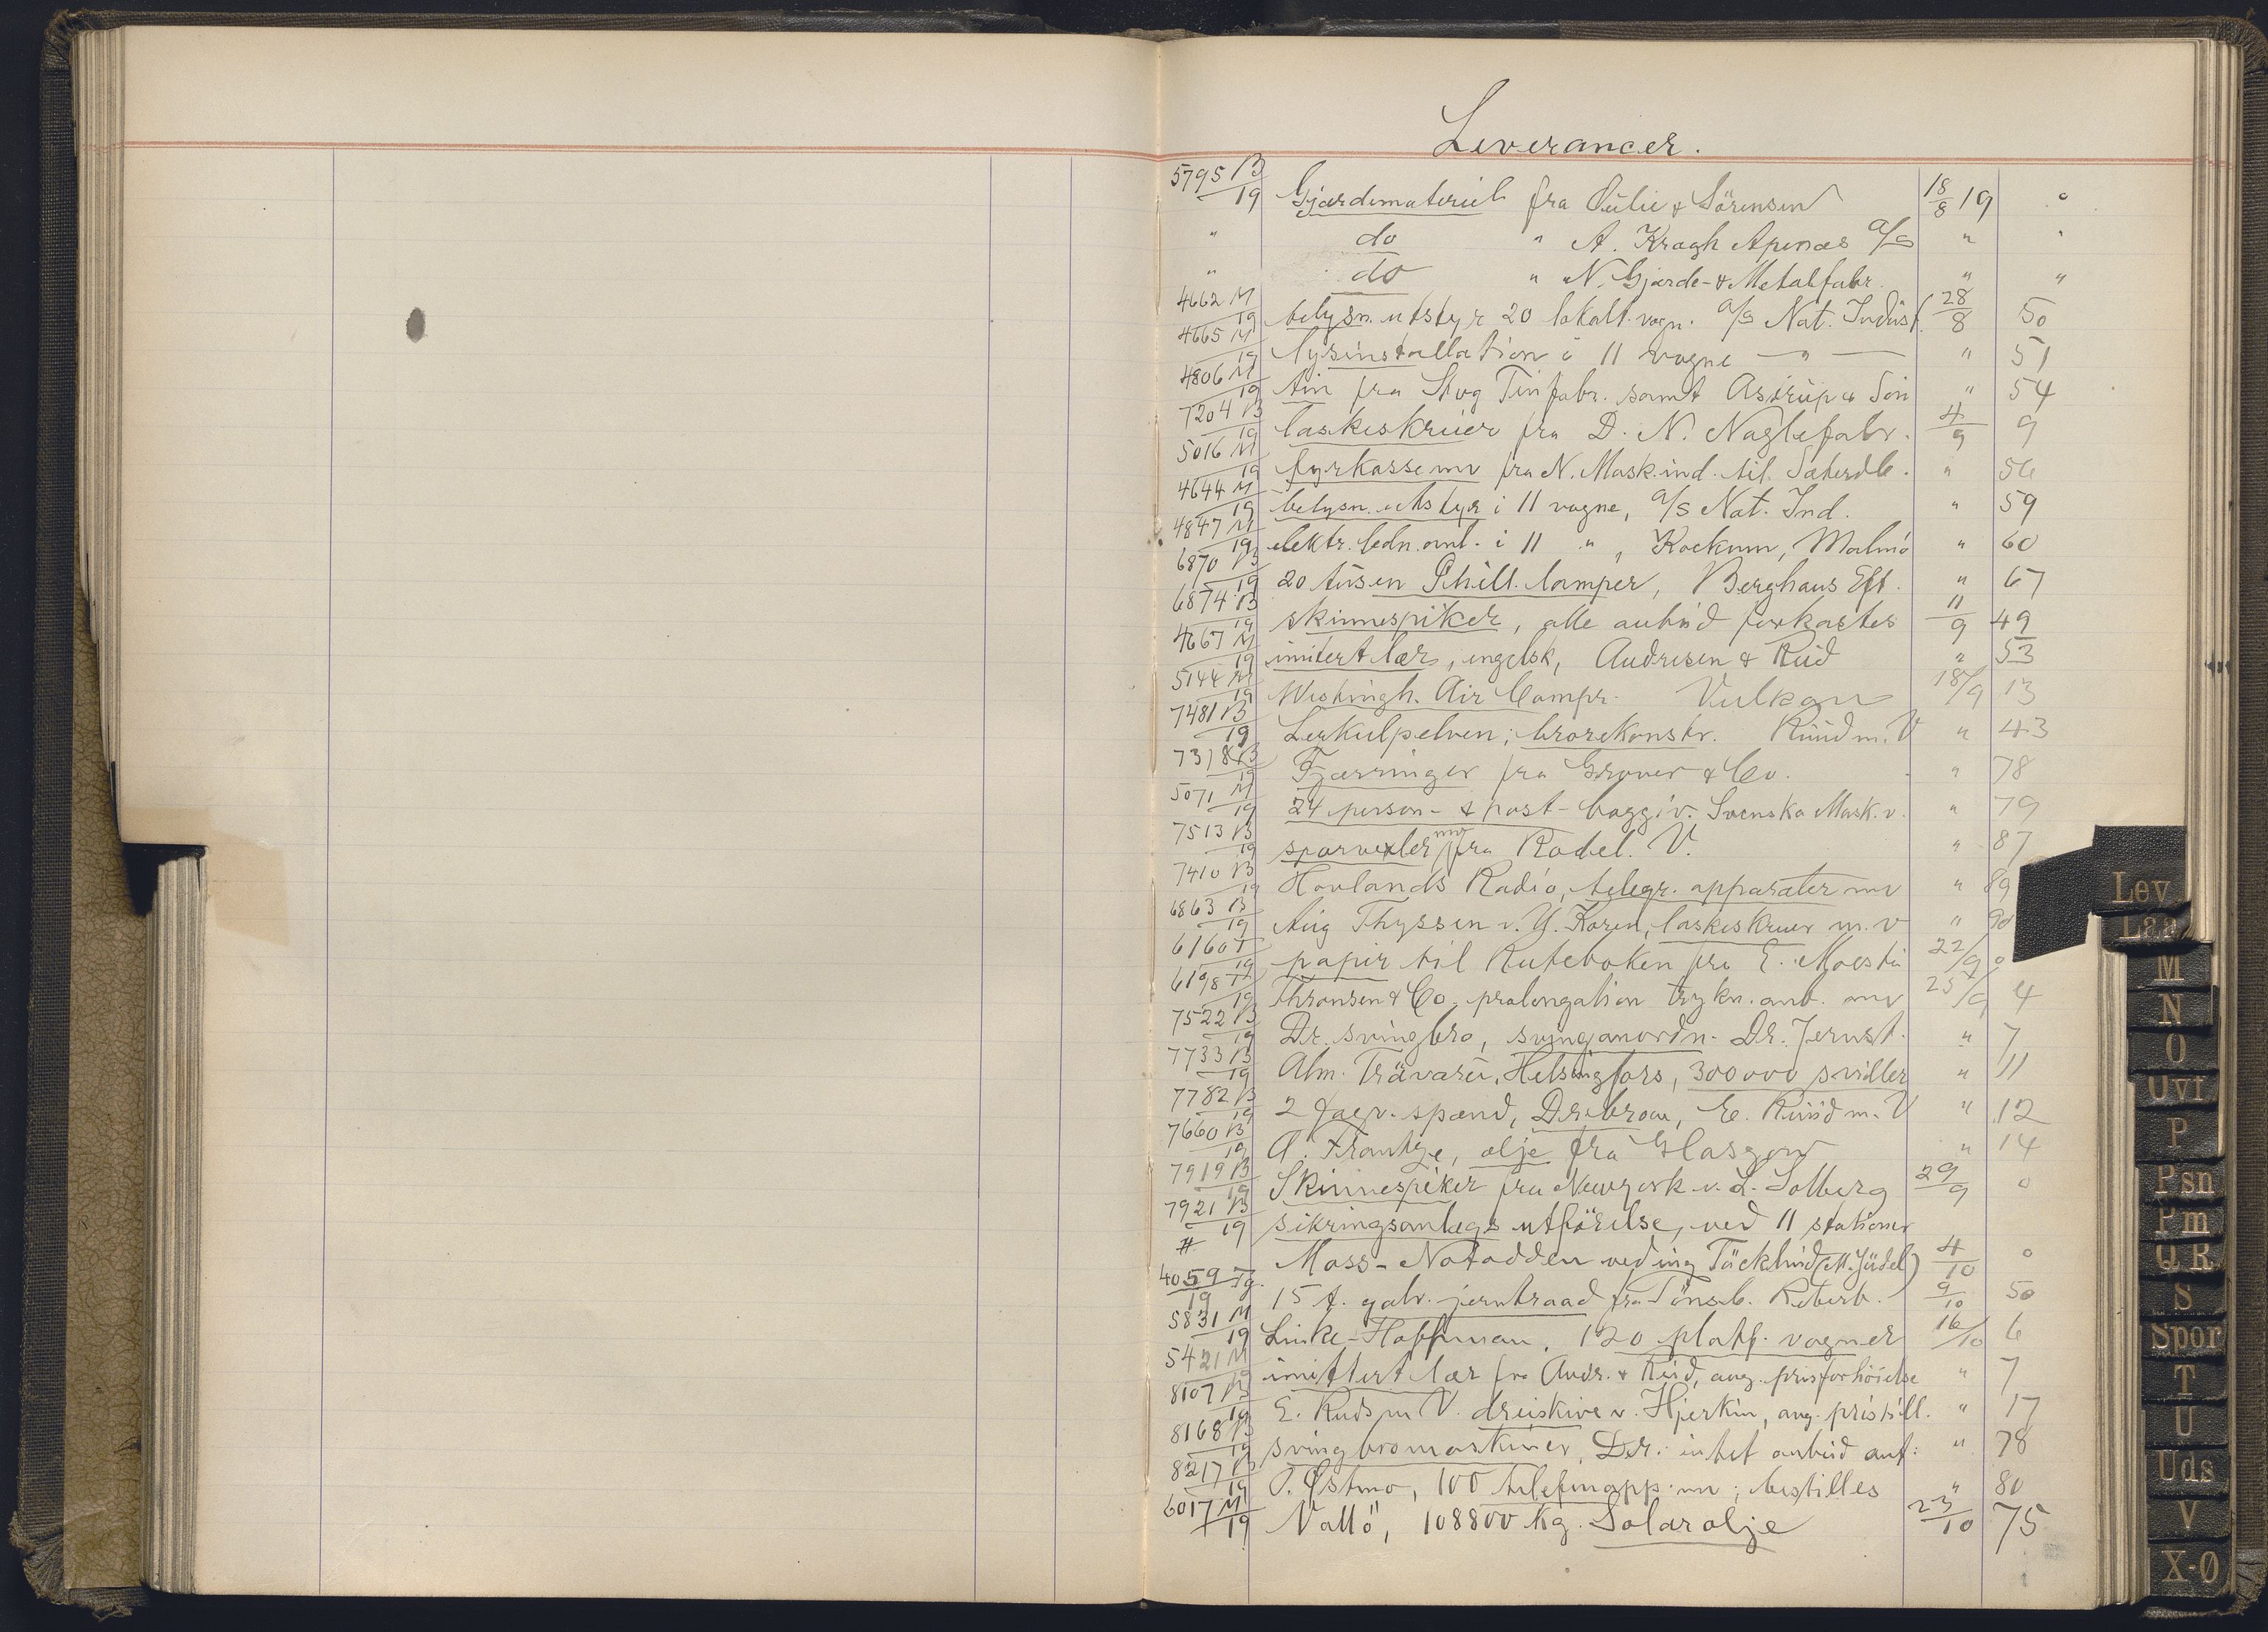 Leverancer.
5795 B/19 Gjærdemateriel fra Julie & Sörensen 18/8 19 "
" do " A. Kragh Apenæs A/S " "
" do " N. Gjærde- & Metalfabr. " "
4662 M/19 belysn. utstyr 20 lokalt. vogn. A/S Nat. Industr. 28/8 50
4665 M/19 lysinstallation i 11 vogne — " — " 51
4806 M/19 tin fra Skog Tinfabr. samt Astrup & Sön " 54
7204 B/19 laskeskruer fra D. N. Naglefabr. 4/9 9
5016 M/19 fyrkasse mv fra N. Mask.ind. til Sæterdb. " 56
4644 M/19 belysn. utstyr i 11 vogne, A/S Nat. Ind. " 59
4847 M/19 elektr. ledn. anl. i 11 " , Kockum, Malmö " 60
6870 B/19 20 tusen Phill. lamper, Berghaus Eft. " 67
6874 B/19 skinnespiker, alle anbud forkastes 11/9 49
4667 M/19 imitert lær, engelsk, Andresen & Ruud " 53
5144 M/19 Westingh. Air Compr. Vulkan 18/9 13
7481 B/19 Lerkulpelven; brorekonstr. Ruud m. V " 43
7318 B/19 Fjærringer fra Grover & Co. " 78
5071 M/19 24 person- & post- boggiv. Svenska Mask. v. " 79
7513 B/19 sporvexler mv fra Rodel. V. " 87
7410 B/19 Hovlands Radio, telegr. apparater mv " 89
6863 B/19 Aug Thyssen v. G. Koren, laskeskruer m. v " 90
6160 T/19 papir til Ruteboken fra E. Moestü 22/9 0
6198 T/19 Thronsen & Co, prolongation trykn. anb. mv 25/9 4
7522 B/19 Dr. svingbro, svinganordn. Dr. Jernst. " 7
7733 B/19 Alm. Trävaru, Helsingfors, 300000 sviller " 11
7782 B/19 2 fagv. spænd, Dr.broen, E. Ruud m. V " 12
7660 B/19 A. Frantze, olje fra Glasgow " 14
7919 B/19 Skinnespiker fra Newyork v. L. Solberg 29/9 0
7921 B/19 sikringsanlægs utförelse, ved 11 stationer
# Moss - Notodden ved ing Täcklind (M. Jüdel) 4/10 0
4059 Tg./19 15 t. galv. jerntraad fra Tönsb. Reberb. 9/10 50
5831 M/19 Linke-Hoffman, 120 platf. vogner 16/10 6
5421 M/19 imittert lær fra Andr. & Ruud, ang. prisforhöielse " 7
8107 B/19 E. Ruds m V. dreiskive v. Hjerkin, ang. pristill. " 17
8168 B/19 svingbromaskiner, Dr. intet anbud ant: " 78
8217 B/19 O. Østmo, 100 telefonapp. mv; bestilles " 80
6017 M/19 Vallö, 108800 kg. Solarolje 23/10 75
Lev.
Laa
M
N
O
Ovf
P
Psn
Pm
Q R
S
Spor
T
U
Uds
V
X-Ø